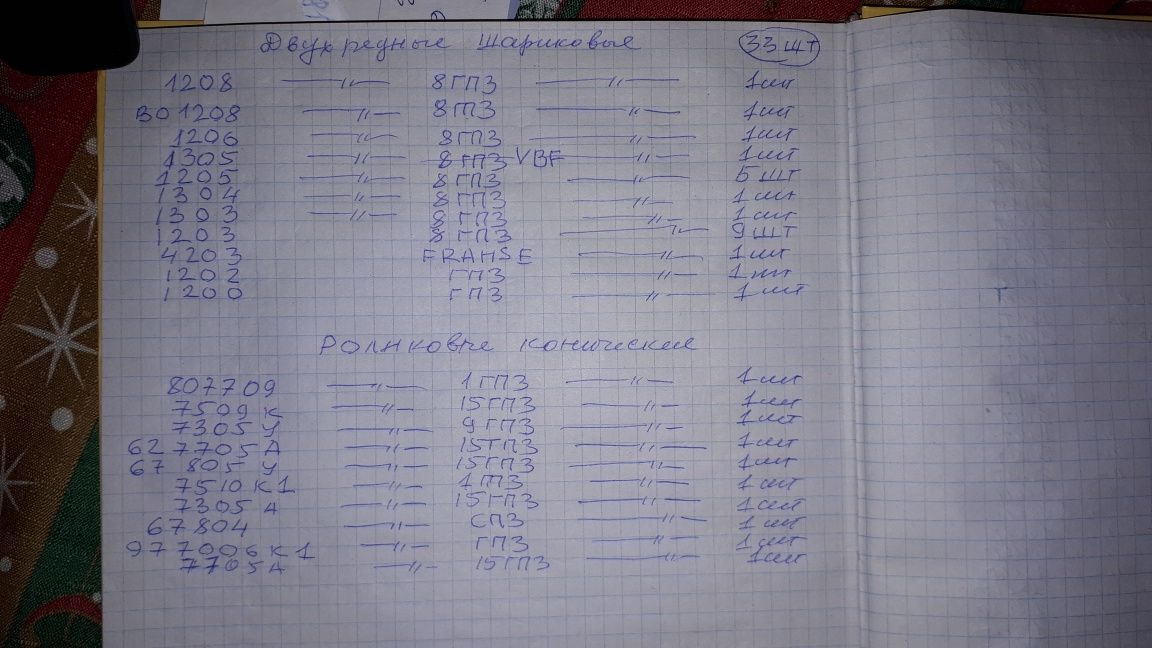 Двухредные шариковые 33 шт
1208 —〃— 8 ГПЗ —〃— 1 шт
ВО 1208 —〃— 8 ГПЗ —〃— 1 шт
1206 —〃— 8 ГПЗ —〃— 1 шт
1305 —〃— 8 ГПЗ VBF —〃— 1 шт
1205 —〃— 8 ГПЗ —〃— 5 шт
1304 —〃— 8 ГПЗ —〃— 1 шт
1303 —〃— 8 ГПЗ —〃— 1 шт
1203 8 ГПЗ —〃— 9 шт
4203 FRAHSE —〃— 1 шт
1202 ГПЗ —〃— 1 шт
1200 ГПЗ —〃— 1 шт
Роликовые конические
807709 —〃— 1 ГПЗ —〃— 1 шт
7509 К —〃— 15 ГПЗ —〃— 1 шт
7305 У —〃— 9 ГПЗ —〃— 1 шт
627705 А —〃— 15 ГПЗ —〃— 1 шт
67 805 У —〃— 15 ГПЗ —〃— 1 шт
7510 К1 —〃— 1 ГПЗ —〃— 1 шт
7305 А —〃— 15 ГПЗ —〃— 1 шт
67804 —〃— СПЗ —〃— 1 шт
977006 К1 —〃— ГПЗ —〃— 1 шт
7705 А —〃— 15 ГПЗ —〃— 1 шт